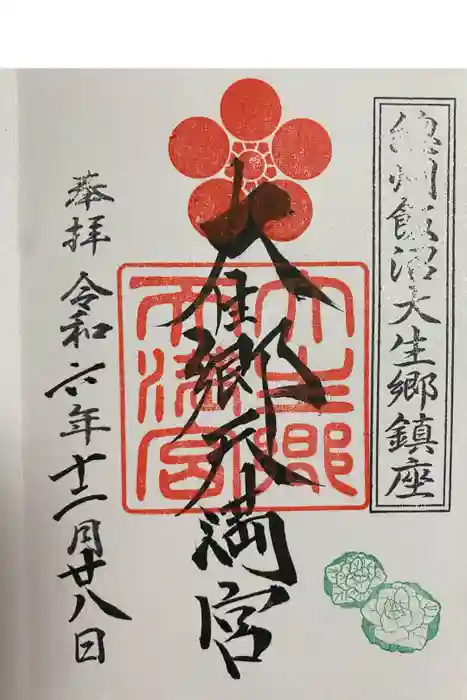 總州飯沼大生郷鎮座
大生郷天満宮
大生郷
天満宮
奉拝 令和六年十二月廿八日